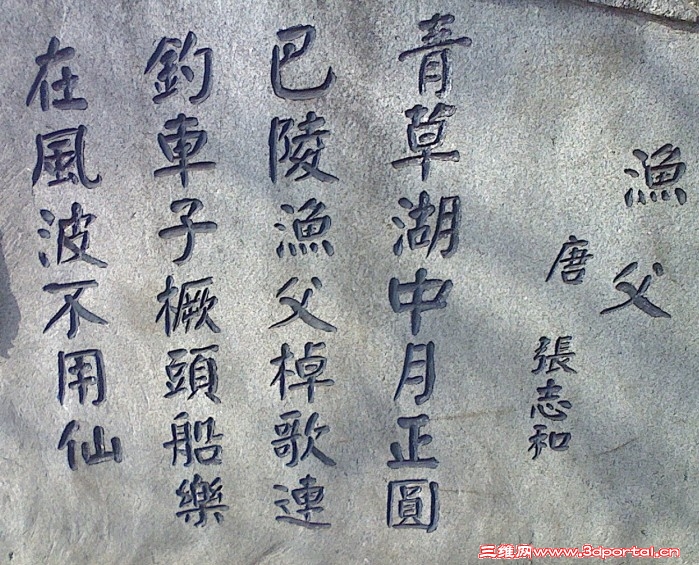 漁父
唐 張志和
青草湖中月正圓
巴陵漁父棹歌連
釣車子橛頭船樂
在風波不用仙
三维网www.3dportal.cn